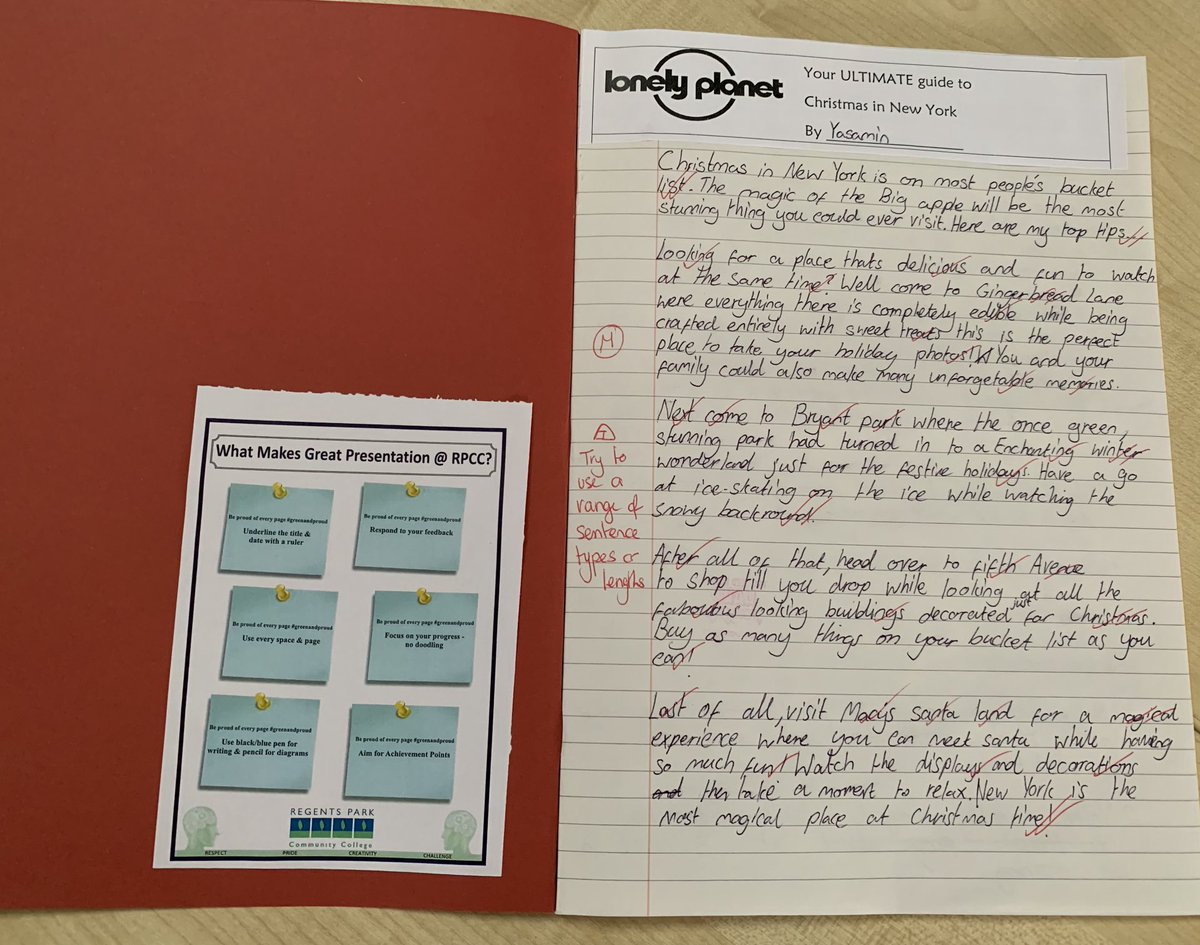 What Makes Great Presentation @ RPCC?
Be proud of every page #greenandproud
Underline the title &
date with a ruler
Be proud of every page #greenandproud
Respond to your feedback
Be proud of every page #greenandproud
Use every space & page
Be proud of every page #greenandproud
Focus on your progress -
no doodling
Be proud of every page #greenandproud
Use black/blue pen for
writing & pencil for diagrams
Be proud of every page #greenandproud
Aim for Achievement Points
REGENTS PARK
Community College
RESPECT PRIDE CREATIVITY CHALLENGE
lonely planet
Your ULTIMATE guide to
Christmas in New York
By Yasamin
Christmas in New York is on most people's bucket
list. The magic of the Big apple will be the most
stunning thing you could ever visit. Here are my top tips.
Looking for a place thats delicious and fun to watch
at the same time? Well come to Gingerbread Lane
were everything there is completely edible while being
crafted entirely with sweet treats this is the perfect
place to take your holiday photos! You and your
family could also make many unforgetable memories.
M
Next come to Bryant park where the once green,
stunning park had turned in to a Enchanting winter
wonderland just for the festive holidays. Have a go
at ice-skating on the ice while watching the
snowy backround.
I
Try to
use a
range of
sentence
types or
lengths
After all of that, head over to fifth Avenue
to shop till you drop while looking at all the
falbovous looking buildings decorated just for Christmas.
Buy as many things on your bucket list as you
can!
Last of all, visit Macys santa land for a magical
experience where you can meet santa while having
so much fun! Watch the displays and decorations
and then take a moment to relax. New York is the
most magical place at Christmas time!